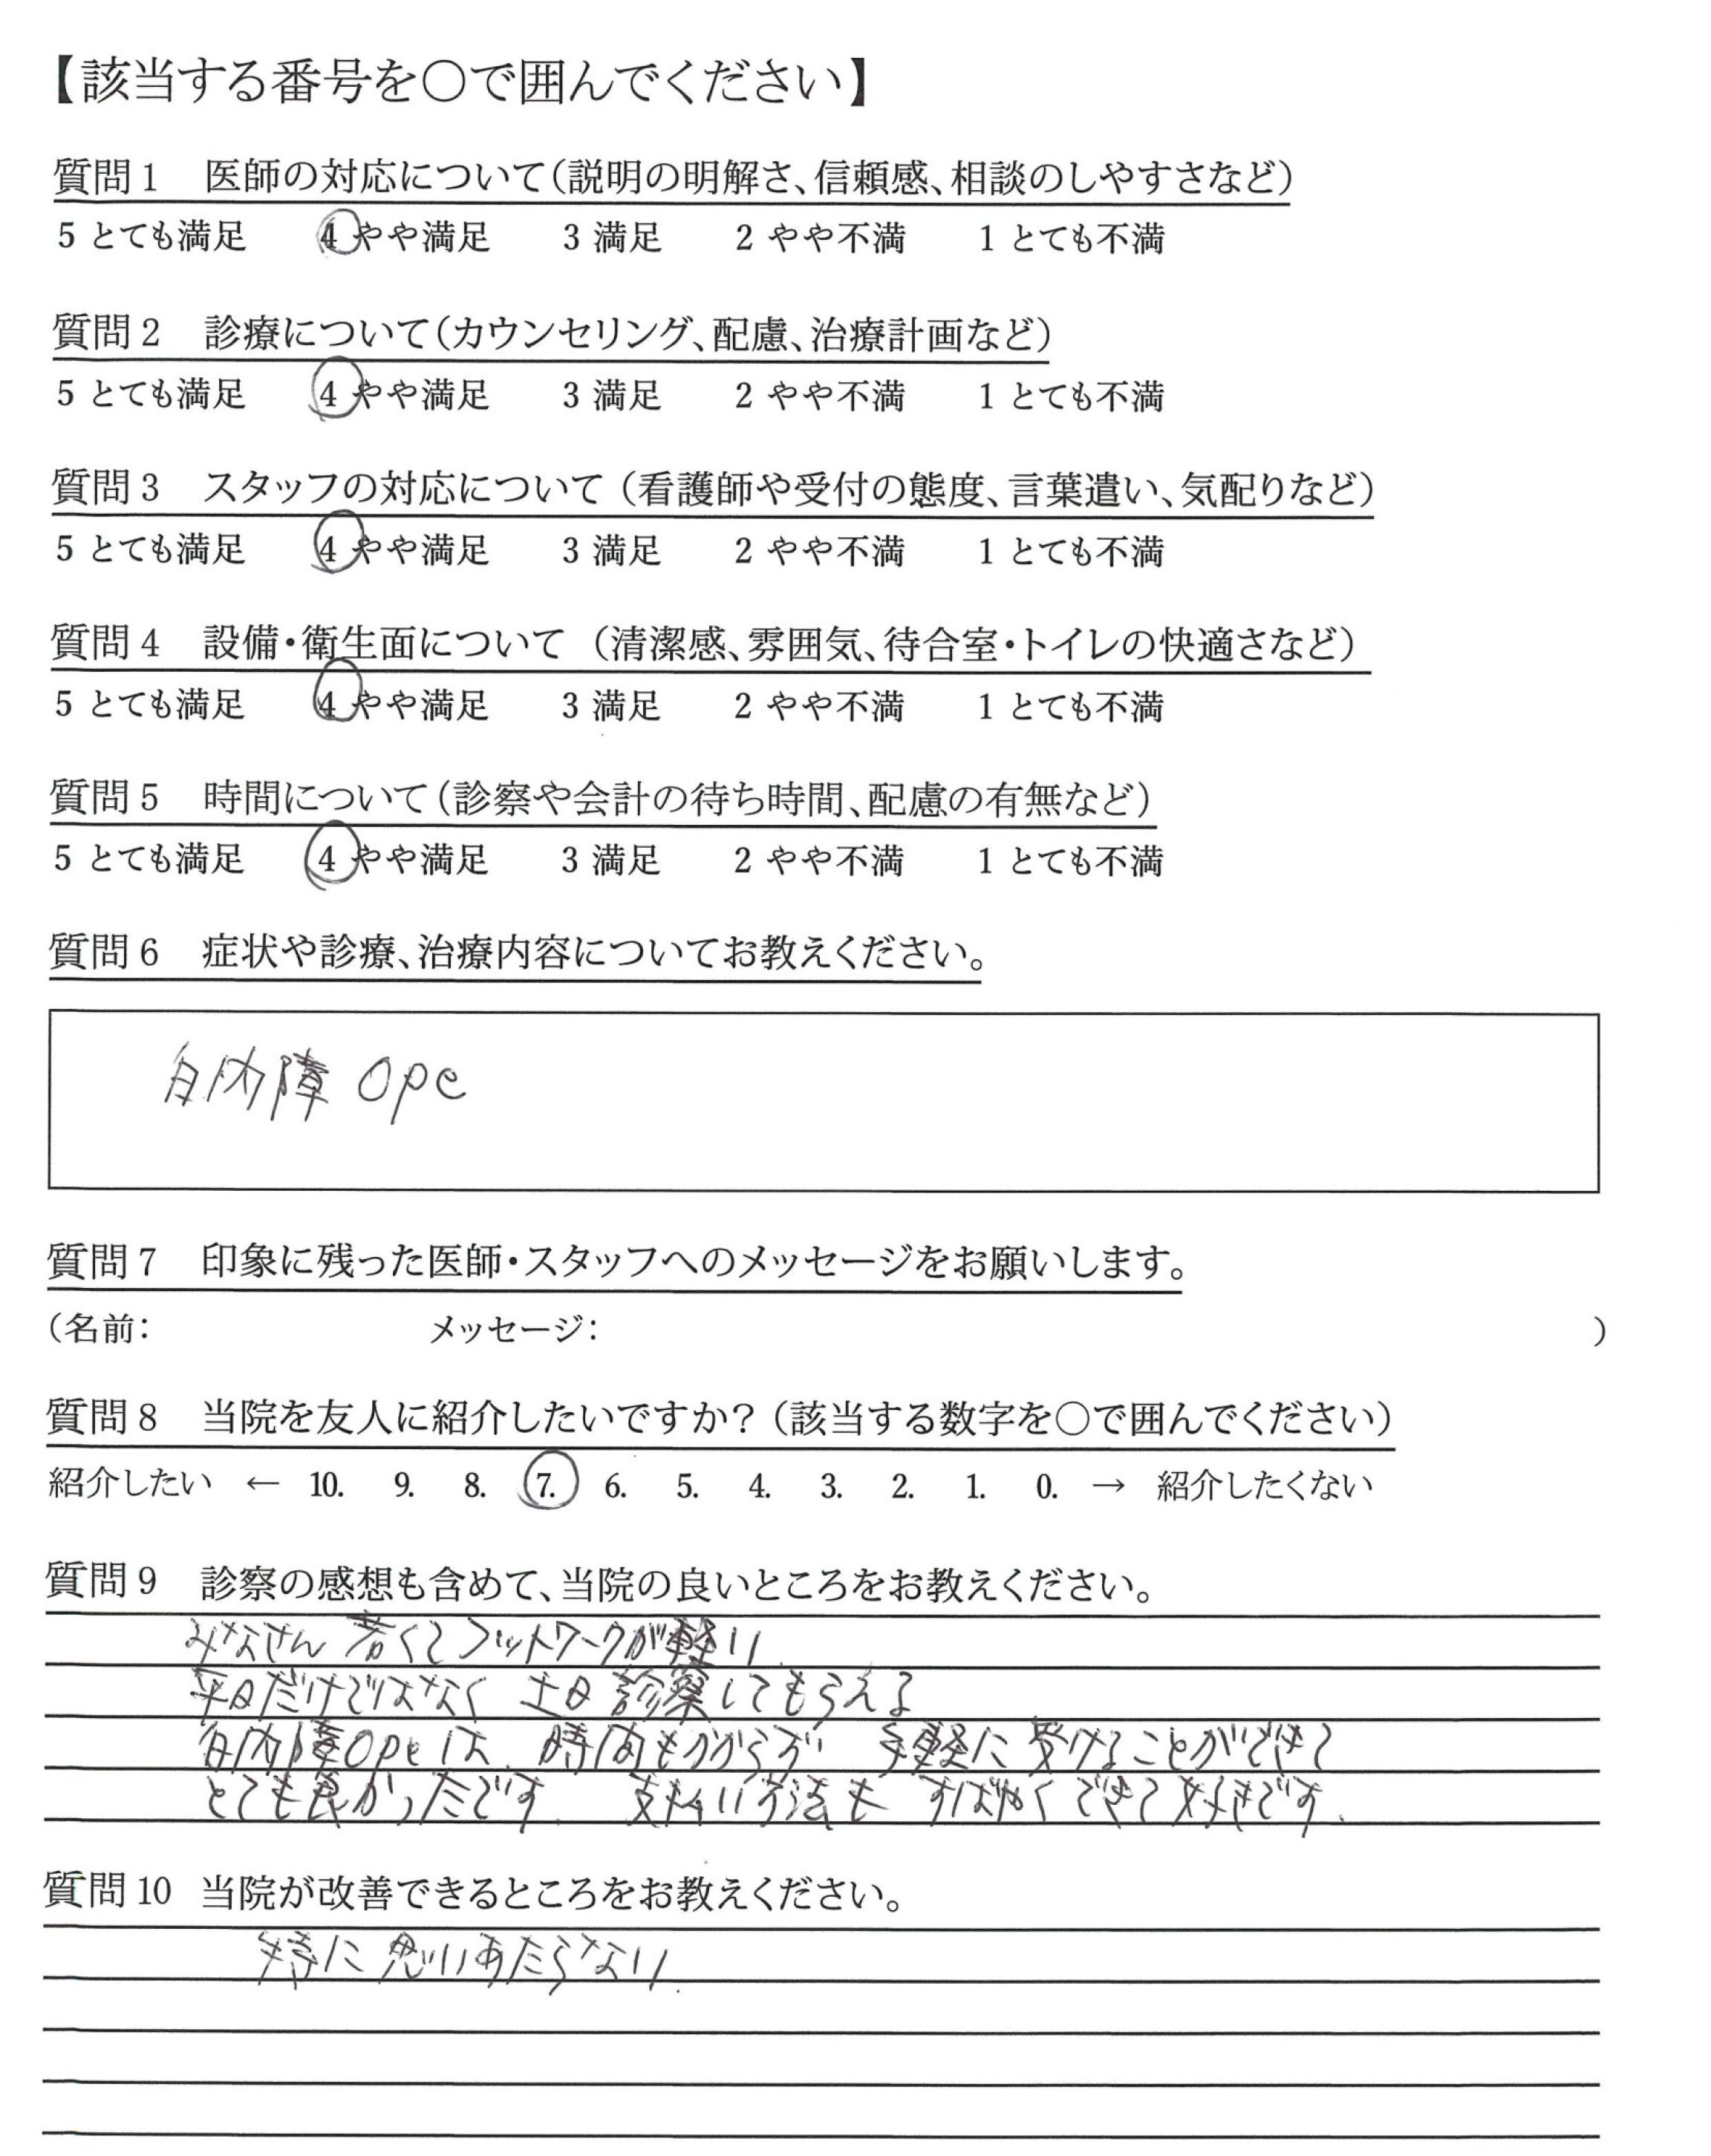 【該当する番号を○で囲んでください】
質問1 医師の対応について(説明の明解さ、信頼感、相談のしやすさなど)
5 とても満足 4 やや満足 3 満足 2 やや不満 1 とても不満
質問2 診療について(カウンセリング、配慮、治療計画など)
5 とても満足 4 やや満足 3 満足 2 やや不満 1 とても不満
質問3 スタッフの対応について(看護師や受付の態度、言葉遣い、気配りなど)
5 とても満足 4 やや満足 3 満足 2 やや不満 1 とても不満
質問4 設備・衛生面について (清潔感、雰囲気、待合室・トイレの快適さなど)
5 とても満足 4 やや満足 3 満足 2 やや不満 1 とても不満
質問5 時間について(診察や会計の待ち時間、配慮の有無など)
5 とても満足 4 やや満足 3 満足 2 やや不満 1 とても不満
質問6 症状や診療、治療内容についてお教えください。
白内障 Ope
質問7 印象に残った医師・スタッフへのメッセージをお願いします。
(名前: メッセージ: )
質問8 当院を友人に紹介したいですか?(該当する数字を○で囲んでください)
紹介したい ← 10. 9. 8. 7. 6. 5. 4. 3. 2. 1. 0. → 紹介したくない
質問9 診察の感想も含めて、当院の良いところをお教えください。
みなさん 若くてフットワークが軽い
平日だけではなく 土日 診察してもらえる
白内障Opeは、時間もかからず 手軽に受けることができて
とても良かったです. 支払い方法も すばやくできて 好きです.
質問10 当院が改善できるところをお教えください。
特に 思いあたらない.